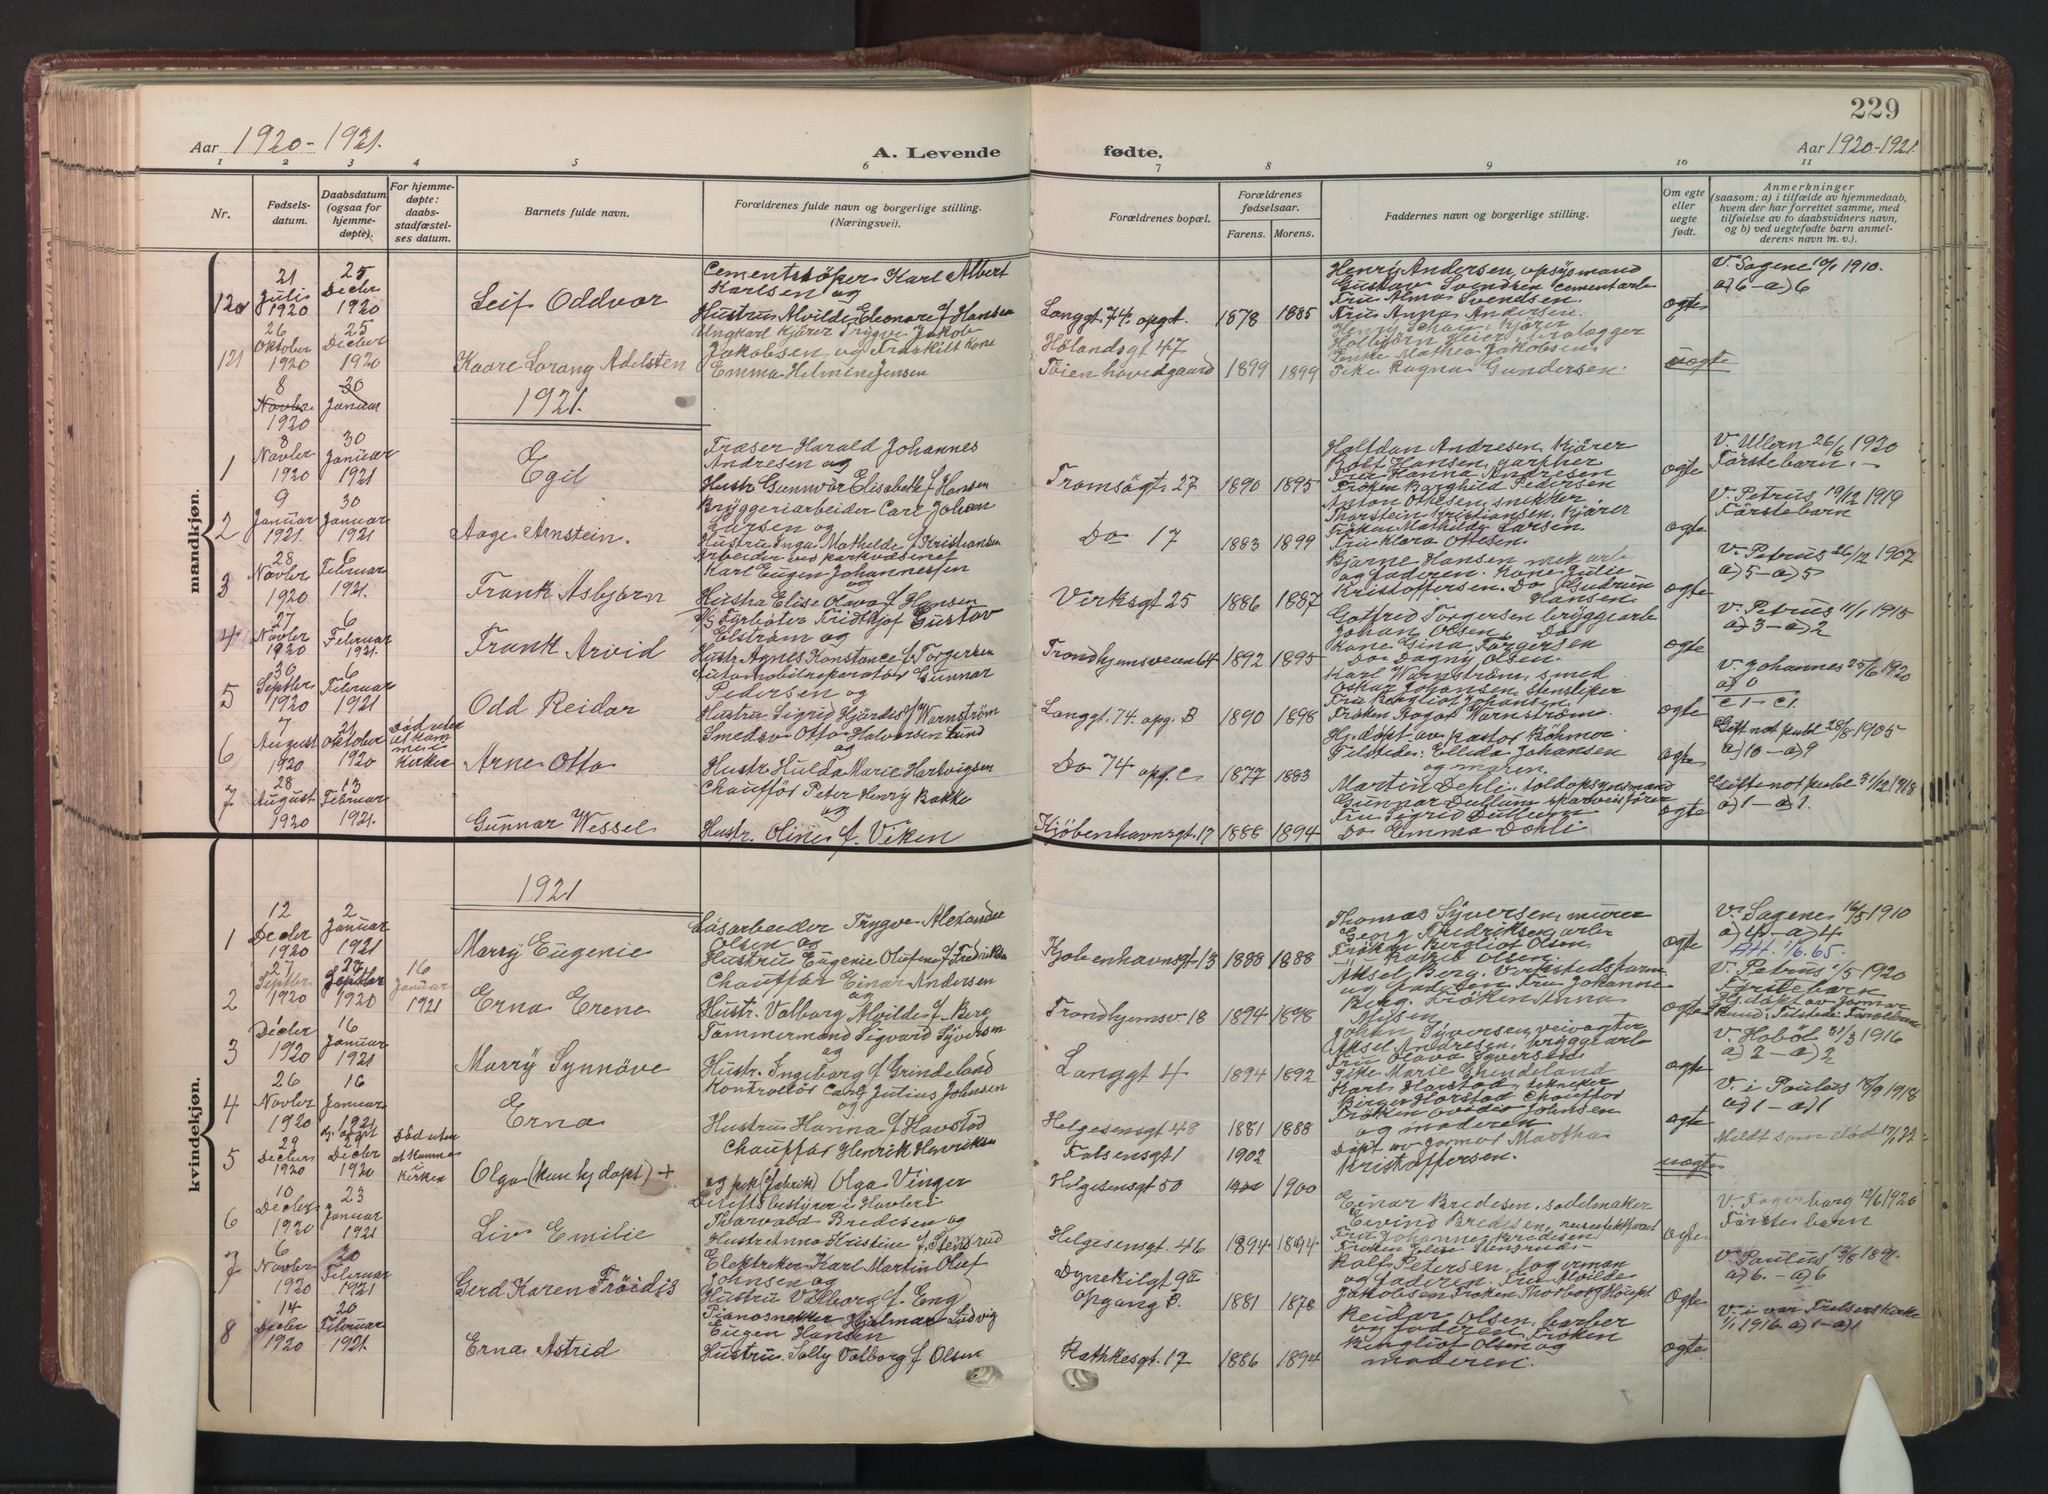 229
Aar 1920-1921.
A. Levende fødte.
Aar 1920-1921.
1 2 3 4 5 6 7 8 9 10 11
Nr.
Fødselsdatum.
Daabsdatum (ogsaa for hjemmedøpte).
For hjemmedøpte: daabsstadfæstelses datum.
Barnets fulde navn.
Forældrenes fulde navn og borgerlige stilling. (Næringsvei).
Forældrenes bopæl.
Forældrenes fødselsaar.
Farens. Morens.
Faddernes navn og borgerlige stilling.
Om egte eller uegte født.
Anmerkninger (saasom: a) i tilfælde av hjemmedaab, hvem der har forrettet samme, med tilføielse av to daabsvidners navn, og b) ved uegtefødte barn anmelderens navn m. v.).
mandkjøn.
120
21 Juli 1920
25 Decbr 1920
Leif Oddvar
Cementstöper Karl Albert
Karlsen og
Hustru Alvilde Eleonore f Hansen
Langgt. 74, opg.
1878 1885
Henry Andersen, opsysmand
Gustav Svendsen cementarb
Fru Alma Svendsen.
Fru Anna Andersen.
ægte
V. Sagene 10/1 1910.
a) 6 - a) 6
121
26 Oktober 1920
25 Decber 1920
Kaare Lorang Adelsten
Ungkarl Kjörer Trygve Jakob
Jakobsen og Fraskilt Kone
Emma Helmine Jensen
Hölandsgt 47
Töien hovedgaard
1899 1899
Enke Mathea Jakobsen
Pike Ragna Gundersen.
uægte
8 Novbr 1920
30 Januar
1921.
1
8 Novbr 1920
30 Januar 1921
Egil
Fræser Harald Johannes
Andresen og
Hustr Gunnvor Elisabeth f Hansen
Tromsögt 27
1890 1895
Halfdan Andresen, Kjörer
Rolf Hansen, gartner
Fru Hanna Andresen
Fröken Borghild Pedersen
ægte
V. Ullern 26/6 1920
Förstebarn.-
2
9 Januar 1921
30 Januar 1921
Aage Arnstein.
Bryggeriarbeider Carl Johan
Larsen og
Hustru Inga Mathilde f Kristiansen
Do 17
1883 1899
Anton Ottesen, snekker
Thorstein Kristiansen, Kjörer
Fröken Mathilde Larsen
Fru Klara Ottesen.
ægte
V. Petrus 19/12 1919
Förstebarn
3
28 Novbr 1920
6 Februar 1921.
Frank Asbjørn
Arbeider ved
Karl Eugen Johannessen
og
Hustru Elise Olava f Hansen
Virksgt 25
1886 1887
Bjarne Hansen mek arb
og faderen. Kone Julie
Kristoffersen. Do Gudrun
Hansen.
ægte
V. Petrus 26/12 1907
a) 5 - a) 5
4
27 Novbr 1920
6 Februar 1921.
Frank Arvid
Fyrböter Fridthjof Gustav
Elström og
Hustr Agnes Konstance f Torgersen
Trondhjemsveien 64
1892 1895
Gotfred Torgersen bryggearb
Johan Olsen, Do
Kone Gina Torgersen
Do Dagny Olsen.
ægte
V. Petrus 11/1 1915
a) 3 - a) 2
5
30 Septbr 1920
6 Februar 1921
Odd Reidar
Automobilreparatör Gunnar
Pedersen og
Hustru Sigrid Hjördis f Warnström
Langgt. 74. opg. B
1890 1898
Karl Warnström, smed
Oskar Johansen, stensliper
Fru Bergliot Johansen.
Fröken Aagot Warnström
ægte
V. Johannes 25/6 1920
a) 0
c 1 - c 1.
6
7 August 1920
21 Oktober 1920
Död uten at komme i Kirken
Arne Otto
Smedsv Otto Halvorsen Lund
og
Hustr. Hulda Marie Hartvigsen
Do 74 opg. c
1877 1883
Hj. döpt av Pastor Böhmer
Tilstede: Ellida Johansen
og moren.
ægte
Gift not publ 28/8 1905
a) 10 - a) 9
7
28 August 1920
13 Februar 1921.
Gunnar Wessel
Chaufför Peter Henry Bakke
og
Hustr. Oline f. Viken
Kjöbenhavnsgt. 17
1888 1894
Martin Dehli, toldopsynsmand
Gunnar Dullum sporveisförer
Fru Sigrid Dullum
Do Emma Dehli
ægte
Gifte not publ 31/12 1918
a) 1 - a) 1.
kvindekjøn.
1921
1
12 Decbr 1920
2 Januar 1921
Marry Eugenie
Löisarbeider Trygve Alexander
Olsen og
Hustru Eugenie Olufine f Fredriksen
Kjøbenhavnsgt 13
1888 1888
Thomas Syversen, murer
Georg Fredriksen arb
Fröken Bergliot Olsen
ægte
V. Sagene 16/5 1910
a) 4 - a) 4
Att. 1/6.65.
2
27 Septbr 1920
27 Septbr 1920
16 Januar 1921
Erna Erene
Chaufför Einar Andersen
og
Hustr. Valborg Alvilde f Berg
Trondhjemsv 18
1894 1898
Aksel Berg. Verkstedsform
og faderen Fru Johanne
Berg. Fröken Anna
Nilsen
ægte
V. Petrus 1/5 1920
Förstebarn
Hj. döpt av Jormor
3
1 Decbr 1920
16 Januar 1921
Marry Synnöve
Tömmermand Sigvard Syversen
og
Hustr. Ingeborg f Grindeland
Langgt 4
1894 1892
Johan Syversen, veivogter
Aksel Andresen, bryggearb
Fru Olava Syversen
Pike Marie Grindeland
ægte
V. Hoböl 31/3 1916
a) 2 - a) 2
4
26 Novbr 1920
16 Januar 1921
Erna
Kontrollör Carl Julius Johnsen
og
Hustru Hanna f Havstad
Helgesensgt 48
1881 1888
Karl Harstad, tekneker
Birger Harstad Chaufför
Fröken Johnsen
og moderen
ægte
V. i Paulus 18/9 1918
a) 1 - a) 1
5
29 Decbr 1920
29 Decbr 1920
Död uten at komme i Kirken
Olga (kun hj döpt) +
Chauffør Henrik Henriksen
og pik (fabrik) Olga Vinger
Falsensgt 1
Helgesensgt 50
1902
1900
Döpt av Jormor Martha
Kristoffersen.
uægte
Meldt som död 17/1 22
6
10 Decbr 1920
23 Januar 1921
Liv Emilie
Thorvald Bredesen og
Hustr Anna Kristine f. Stensrud
Helgesensgt. 46
1894 1894
Einar Bredesen. sadelmaker
Eivind Bredesen,
Fru Johanne Bredesen
Fröken Else Stensrud
ægte
V. Fagerborg 12/6 1920
Förstebarn
7
6 Novbr 1920
20 Februar 1921
Gerd Karen Fröidis
Elektriker Karl Martin Oluf
Johnsen og
Hustru Valborg f. Eng
Dynekilgt 9 II
Opgang B.
1881 1878
Rolf Petersen, lagerman
og faderen. Fru Alvilde
Jakobsen Fröken Thorborg
ægte
V. Paulus 1891.
a) 6. - a) 6
8
14 Decbr 1920
20 Februar 1921.
Erna Astrid
Pianosnekker Hjalmar Ludvig
Eugen Hansen
Hustru Solly Valborg f Olsen
Rathkesgt. 17
1886 1894
Reidar Olsen, barber
og faderen. Fröken
Bergliot Olsen og
moderen.
ægte
V. i vor Frelserskirke
1/1 1916 a) 1 - a) 1